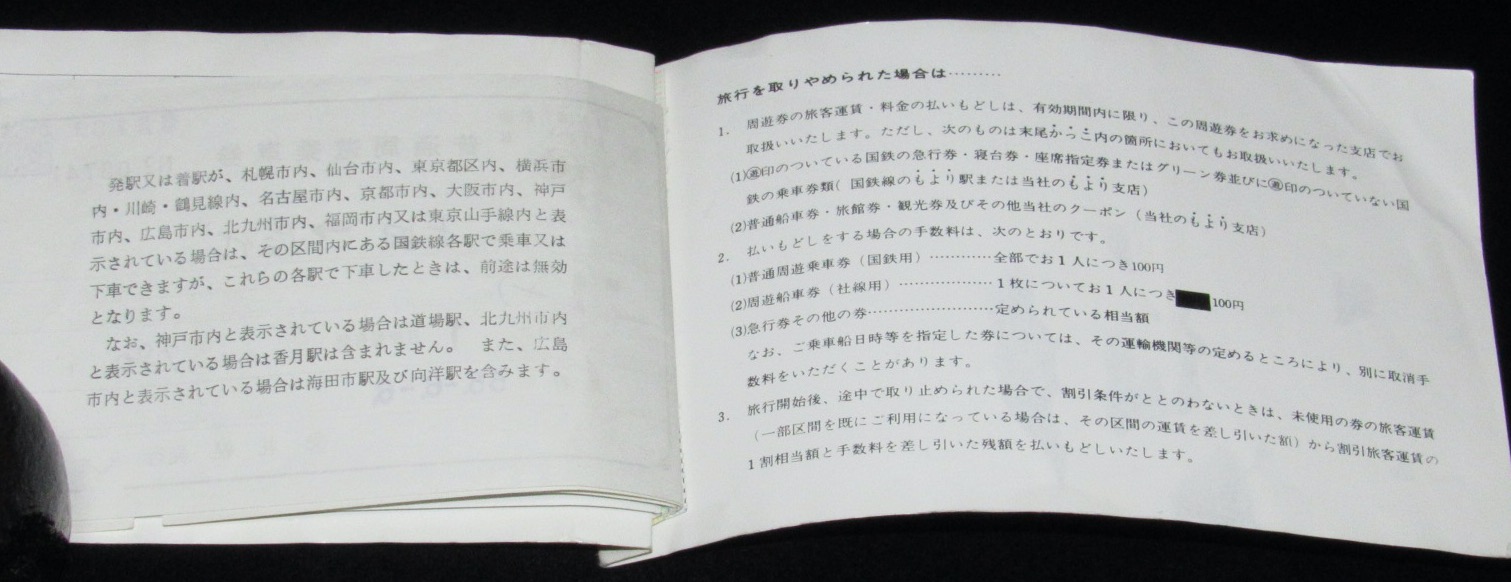 発駅又は着駅が、札幌市内、仙台市内、東京都区内、横浜市
内・川崎・鶴見線内、名古屋市内、京都市内、大阪市内、神戸
市内、広島市内、北九州市内、福岡市内又は東京山手線内と表
示されている場合は、その区間内にある国鉄線各駅で乗車又は
下車できますが、これらの各駅で下車したときは、前途は無効
となります。
なお、神戸市内と表示されている場合は道場駅、北九州市内
と表示されている場合は香月駅は含まれません。 また、広島
市内と表示されている場合は海田市駅及び向洋駅を含みます。
旅行を取りやめられた場合は………
1. 周遊券の旅客運賃・料金の払いもどしは、有効期間内に限り、この周遊券をお求めになった支店でお
取扱いいたします。ただし、次のものは末尾かっこ内の箇所においてもお取扱いいたします。
(1)㊝印のついている国鉄の急行券・寝台券・座席指定券またはグリーン券並びに㊝印のついていない国
鉄の乗車券類(国鉄線のもより駅または当社のもより支店)
(2)普通船車券・旅館券・観光券及びその他当社のクーポン(当社のもより支店)
2. 払いもどしをする場合の手数料は、次のとおりです。
(1)普通周遊乗車券(国鉄用)…………全部でお1人につき100円
(2)周遊船車券(社線用)………………1枚についてお1人につき 100円
(3)急行券その他の券……………………定められている相当額
なお、ご乗車船日時等を指定した券については、その運輸機関等の定めるところにより、別に取消手
数料をいただくことがあります。
3. 旅行開始後、途中で取り止められた場合で、割引条件がととのわないときは、未使用の券の旅客運賃
(一部区間を既にご利用になっている場合は、その区間の運賃を差し引いた額)から割引旅客運賃の
1割相当額と手数料を差し引いた残額を払いもどしいたします。